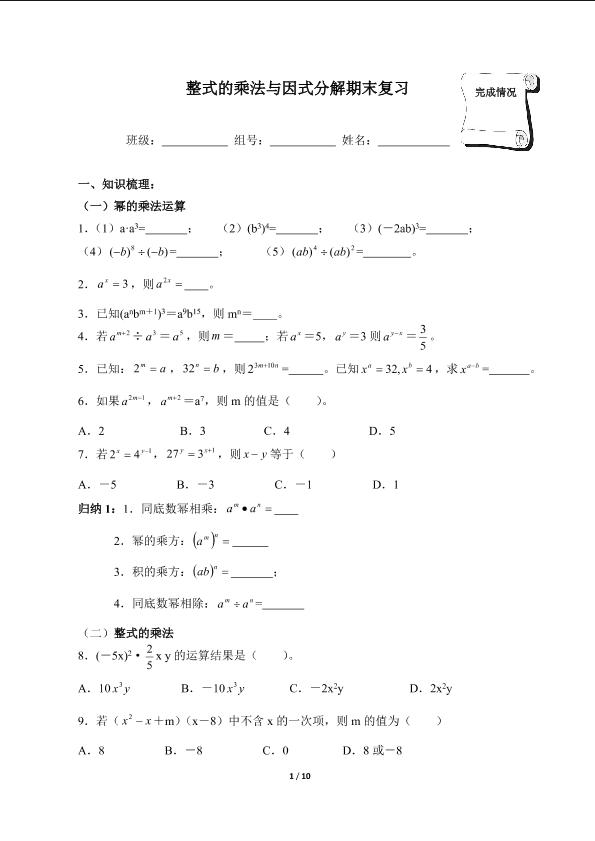 整式的乘法与因式分解期末复习
完成情况
班级：__________ 组号：__________ 姓名：__________
一、知识梳理：
（一）幂的乘法运算
1.（1）a·a³=_______； （2）(b³)⁴=_______； （3）(－2ab)³=_______；
（4）(－b)⁸÷(－b)=_______； （5）(ab)⁴÷(ab)²=________。
2．aˣ＝3，则a²ˣ＝____。
3．已知(aⁿbᵐ⁺¹)³＝a⁹b¹⁵，则 mⁿ＝____。
4．若aᵐ⁺²÷a³＝a⁵，则m＝_____；若aˣ=5，aʸ=3 则aʸ⁻ˣ=3/5。
5．已知：2ᵐ＝a，32ⁿ＝b，则2³ᵐ⁺¹⁰ⁿ=______。已知xᵃ＝32,xᵇ＝4，求xᵃ⁻ᵇ=_______。
6．如果a²ᵐ⁻¹，aᵐ⁺²＝a⁷，则 m 的值是（ ）。
A．2 B．3 C．4 D．5
7．若2ˣ＝4ʸ⁻¹，27ʸ＝3ˣ⁺¹，则x－y等于（ ）
A．－5 B．－3 C．－1 D．1
归纳 1：1．同底数幂相乘：aᵐ•aⁿ＝____
2．幂的乘方：(aᵐ)ⁿ＝______
3．积的乘方：(ab)ⁿ＝_______；
4．同底数幂相除：aᵐ÷aⁿ=_______
（二）整式的乘法
8．(－5x)²·2/5 x y 的运算结果是（ ）。
A．10x³y B．－10x³y C．－2x²y D．2x²y
9．若（x²－x＋m）（x－8）中不含 x 的一次项，则 m 的值为（ ）
A．8 B．－8 C．0 D．8 或－8
1 / 10